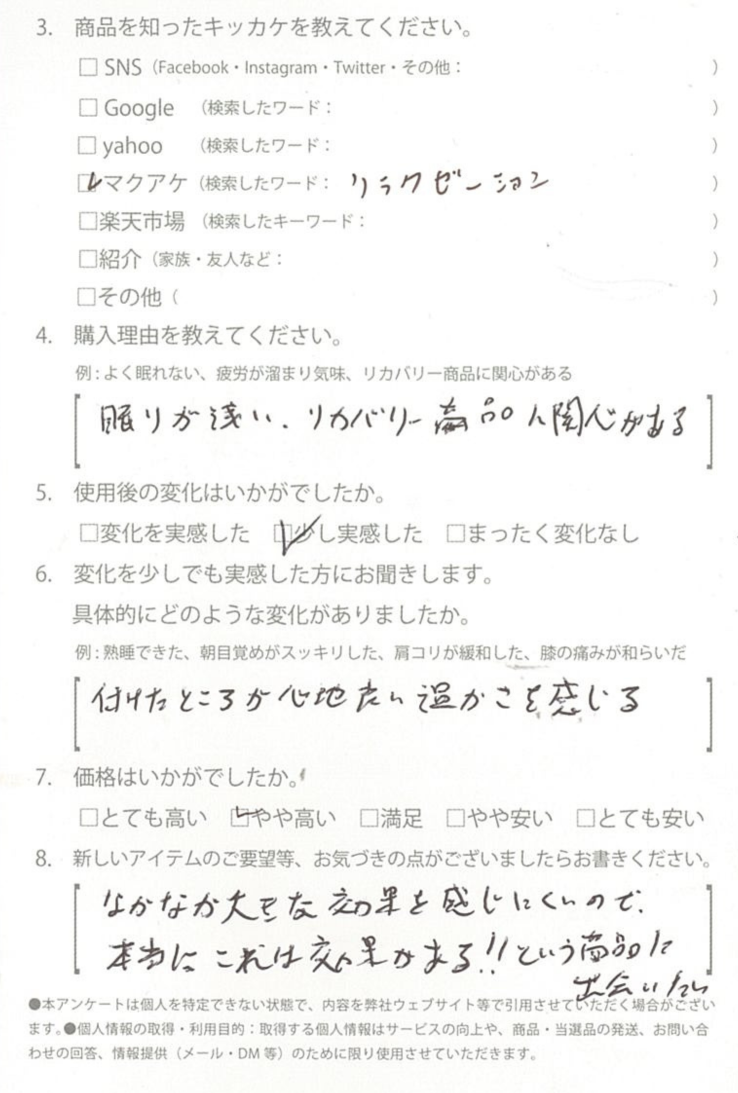 3. 商品を知ったキッカケを教えてください。
□ SNS（Facebook・Instagram・Twitter・その他： ）
□ Google （検索したワード： ）
□ yahoo （検索したワード： ）
☑マクアケ（検索したワード： リラクゼーション ）
□楽天市場 （検索したキーワード： ）
□紹介（家族・友人など： ）
□その他（ ）
4. 購入理由を教えてください。
例：よく眠れない、疲労が溜まり気味、リカバリー商品に関心がある
眠りが浅い、リカバリー商品に関心がある
5. 使用後の変化はいかがでしたか。
□変化を実感した ☑少し実感した □まったく変化なし
6. 変化を少しでも実感した方にお聞きします。
具体的にどのような変化がありましたか。
例：熟睡できた、朝目覚めがスッキリした、肩コリが緩和した、膝の痛みが和らいだ
付けたところが心地良い温かさを感じる
7. 価格はいかがでしたか。
□とても高い ☑やや高い □満足 □やや安い □とても安い
8. 新しいアイテムのご要望等、お気づきの点がございましたらお書きください。
なかなか大きな効果を感じにくいので、
本当にこれは効果がある!!という商品に
出会いたい
●本アンケートは個人を特定できない状態で、内容を弊社ウェブサイト等で引用させていただく場合がござい
ます。●個人情報の取得・利用目的：取得する個人情報はサービスの向上や、商品・当選品の発送、お問い合
わせの回答、情報提供（メール・DM 等）のために限り使用させていただきます。